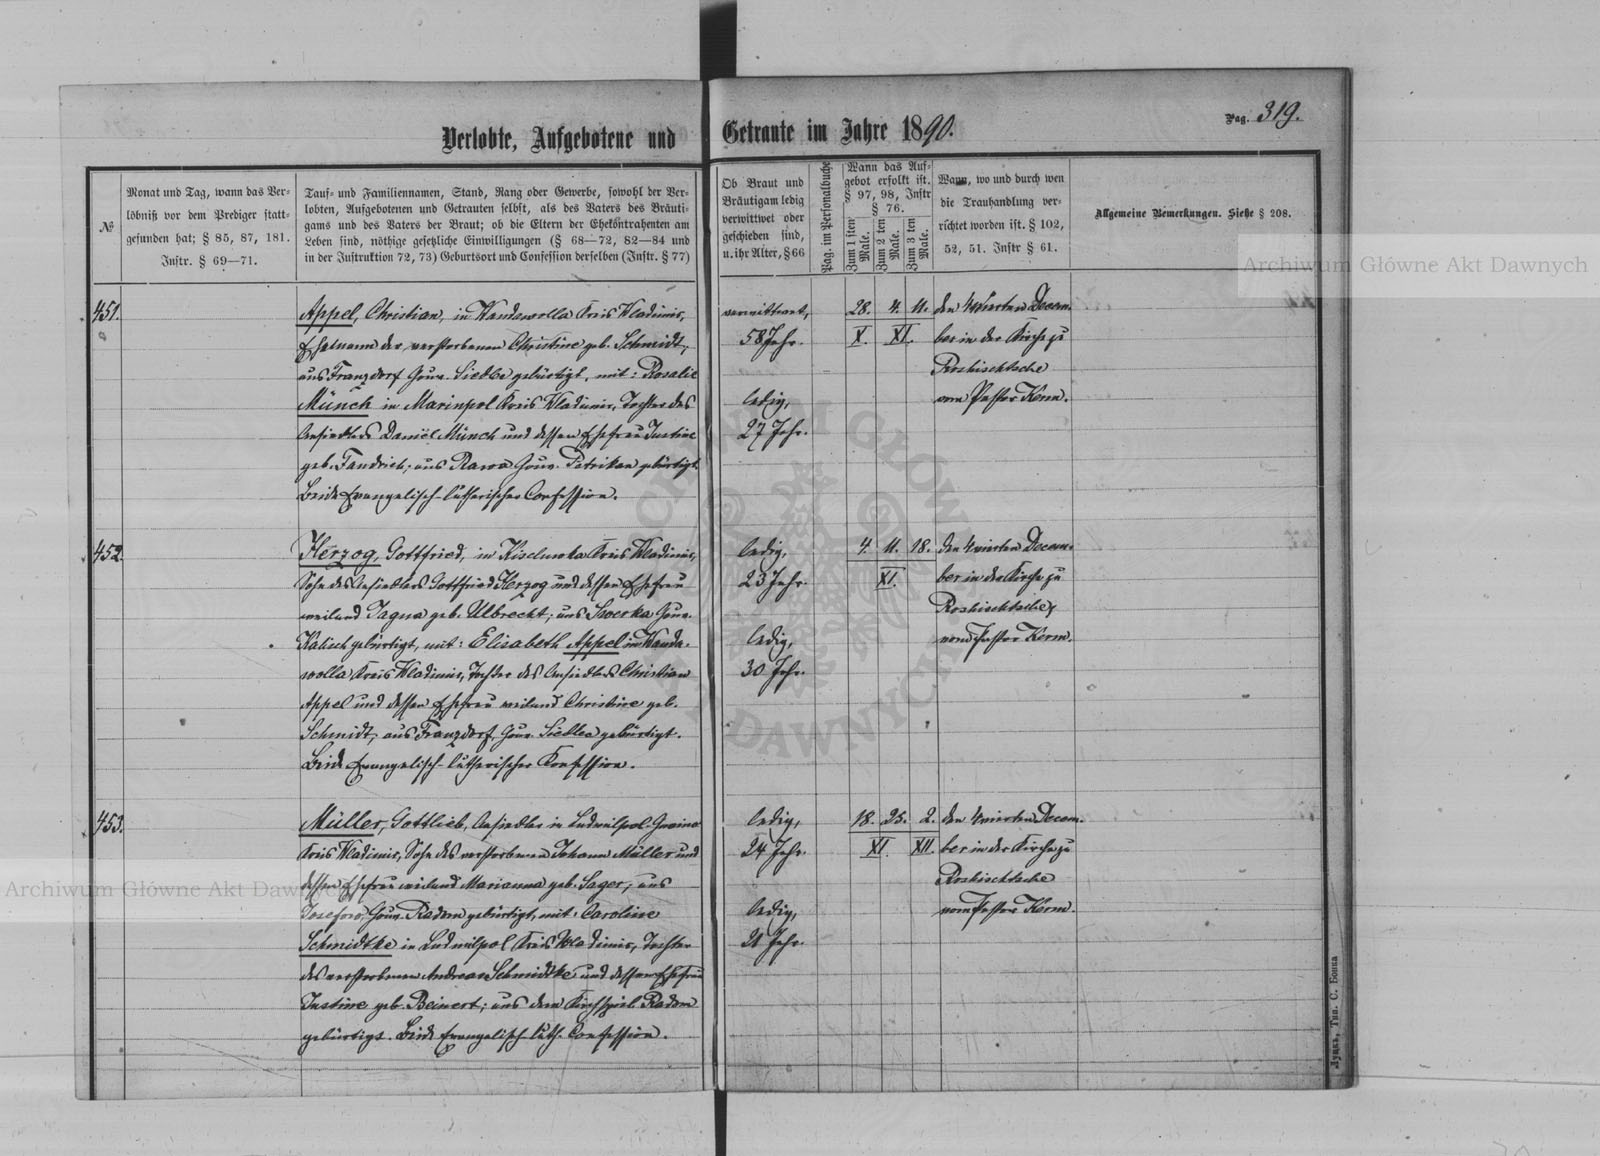 Pag. 319.
Verlobte, Aufgebotene und Getraute im Jahre 1890.
№
Monat und Tag, wann das Ver-
löbniß vor dem Prediger statt-
gefunden hat; § 85, 87, 181.
Instr. § 69—71.
Tauf- und Familiennamen, Stand, Rang oder Gewerbe, sowohl der Ver-
lobten, Aufgebotenen und Getrauten selbst, als des Vaters des Bräuti-
gams und des Vaters der Braut; ob die Eltern der Ehekontrahenten am
Leben sind, nöthige gesetzliche Einwilligungen (§ 68—72, 82—84 und
in der Instruktion 72, 73) Geburtsort und Confession derselben (Instr. § 77)
Ob Braut und
Bräutigam ledig
verwittwet oder
geschieden sind,
u. ihr Alter, § 66
Pag. im Personalbuche
Wann das Auf-
gebot erfolgt ist.
§ 97, 98, Instr
§ 76.
Zum 1 sten Male.
Zum 2 ten Male.
Zum 3 ten Male.
Wann, wo und durch wen
die Trauhandlung ver-
richtet worden ist. § 102,
52, 51. Instr § 61.
Allgemeine Bemerkungen. Siehe § 208.
451.
Appel, Christian, in Wandawolla Kreis Wladimir,
Ehemann der verstorbenen Christine geb. Schmidt,
aus Franzdorf Gouv. Siedlce gebürtigt, mit: Rosalie
Münch in Marinpol Kreis Wladimir, Tochter des
Ansiedlers Daniel Münch und dessen Ehefrau Justine
geb. Fandrich, aus Rawa Gouv. Petrikau gebürtigt.
Beide Evangelisch-lutherischer Confession.
verwittwet,
58 Jahr.
ledig,
27 Jahr.
28. 4. 11.
X. XI.
den 4 vierten Decem-
ber in der Kirche zu
Roshischtsche
vom Pastor Kerm.
452.
Herzog, Gottfried, in Kiselurka Kreis Wladimir,
Sohn des Ansiedlers Gottfried Herzog und dessen Ehefrau
weiland Jagna geb. Ulbrecht, aus Gouv.
Kalisch gebürtigt, mit: Elisabeth Appel in Wanda-
wolla Kreis Wladimir, Tochter des Ansiedlers Christian
Appel und dessen Ehefrau weiland Christine geb.
Schmidt, aus Franzdorf, Gouv. Siedlce gebürtigt.
Beide Evangelisch-lutherischer Konfession.
ledig,
23 Jahr.
ledig,
30 Jahr.
4. 11. 18.
XI.
den 4 vierten Decem-
ber in der Kirche zu
Roshischtsche
vom Pastor Kerm.
453.
Müller, Gottlieb, Ansiedler in Ludwilpol
Kreis Wladimir, Sohn des verstorbenen Johann Müller und
dessen Ehefrau weiland Marianna geb. Sager, aus
Josefow, Gouv. Radom gebürtigt, mit: Caroline
Schmidtke in Ludwilpol Kreis Wladimir, Tochter
des verstorbenen Andreas Schmidtke und dessen Ehefrau
Justine geb. Beinert; aus dem Kirchspiel Radom
gebürtigt. Beide Evangelisch-luth. Confession.
ledig,
24 Jahr.
ledig,
21 Jahr.
18. 25. 2.
XI. XII.
den 4 vierten Decem-
ber in der Kirche zu
Roshischtsche
vom Pastor Kerm.
Луцкъ, Тип. С. Бокка
Archiwum Główne Akt Dawnych
Archiwum Główne Akt Dawnych